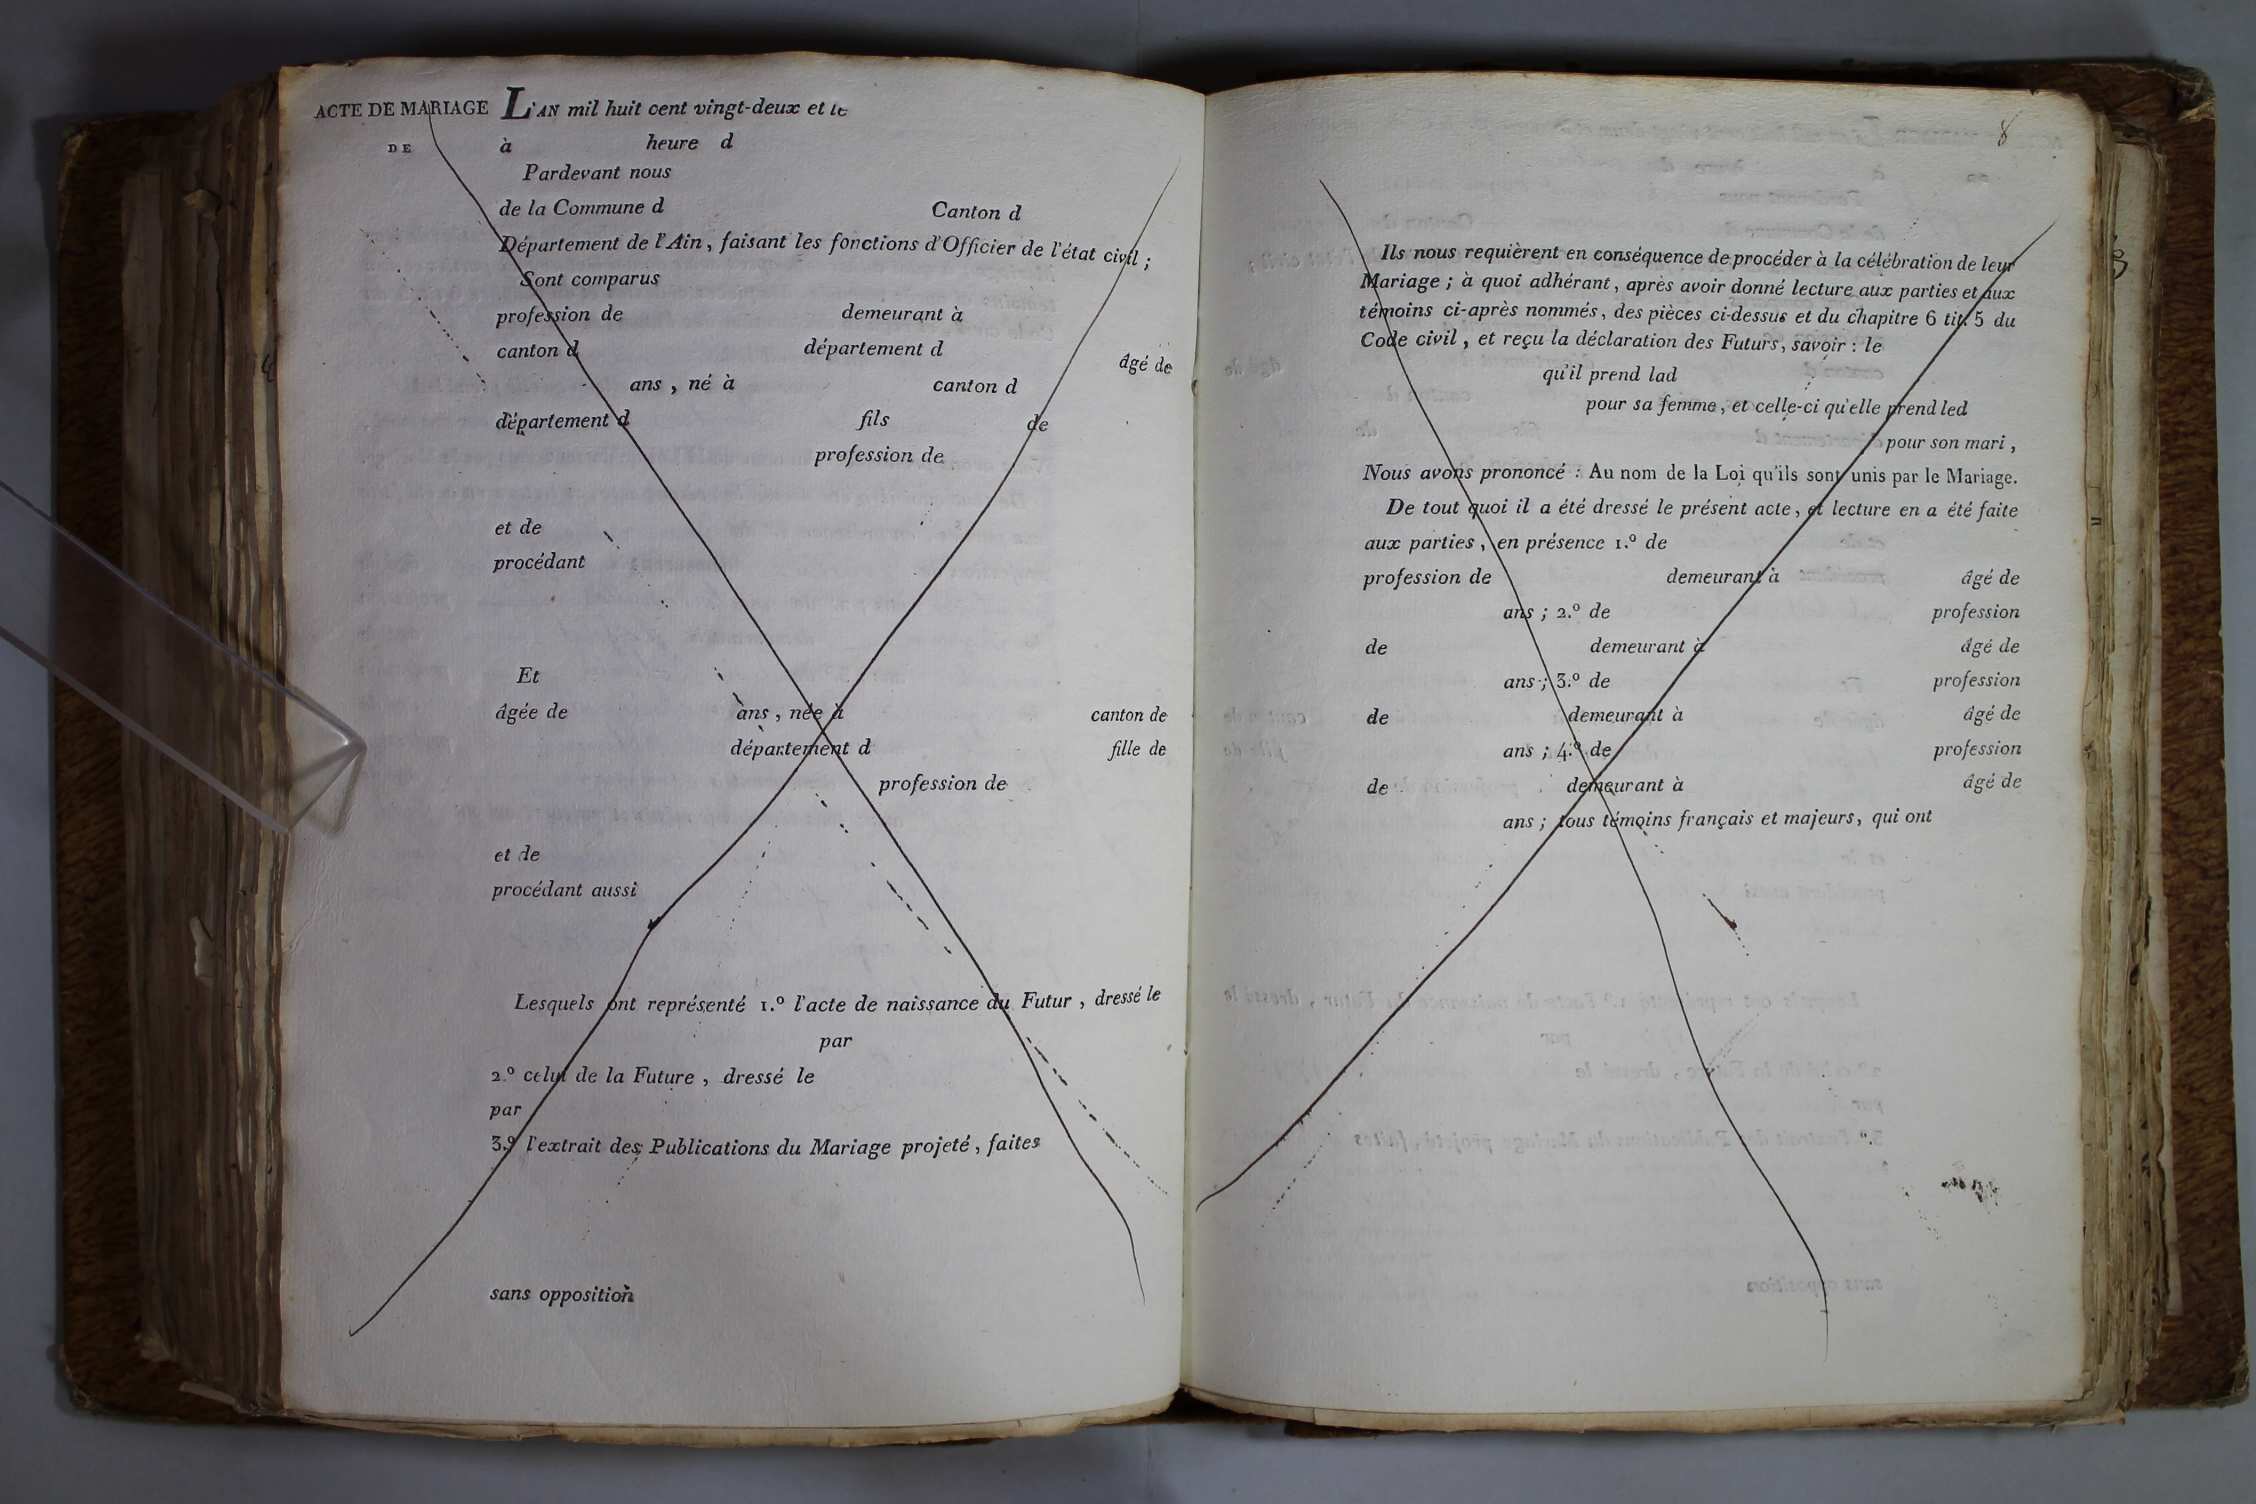 ACTE DE MARIAGE L'AN mil huit cent vingt-deux et le
DE à heure d
Pardevant nous
de la Commune d Canton d
Département de l'Ain, faisant les fonctions d'Officier de l'état civil ;
Sont comparus
profession de demeurant à
canton d département d âgé de
ans, né à canton d
département d fils de
profession de
et de
procédant
Et
âgée de ans, née à canton de
département d fille de
profession de
et de
procédant aussi
Lesquels ont représenté 1.º l'acte de naissance du Futur, dressé le
par
2.º celui de la Future, dressé le
par
3.º l'extrait des Publications du Mariage projeté, faites
sans opposition
8
Ils nous requièrent en conséquence de procéder à la célébration de leur
Mariage ; à quoi adhérant, après avoir donné lecture aux parties et aux
témoins ci-après nommés, des pièces ci-dessus et du chapitre 6 tit. 5 du
Code civil, et reçu la déclaration des Futurs, savoir : le
qu'il prend lad
pour sa femme, et celle-ci qu'elle prend led
pour son mari,
Nous avons prononcé : Au nom de la Loi qu'ils sont unis par le Mariage.
De tout quoi il a été dressé le présent acte, et lecture en a été faite
aux parties, en présence 1.º de
profession de demeurant à âgé de
ans ; 2.º de profession
de demeurant à âgé de
ans ; 3.º de profession
de demeurant à âgé de
ans ; 4.º de profession
de demeurant à âgé de
ans ; tous témoins français et majeurs, qui ont